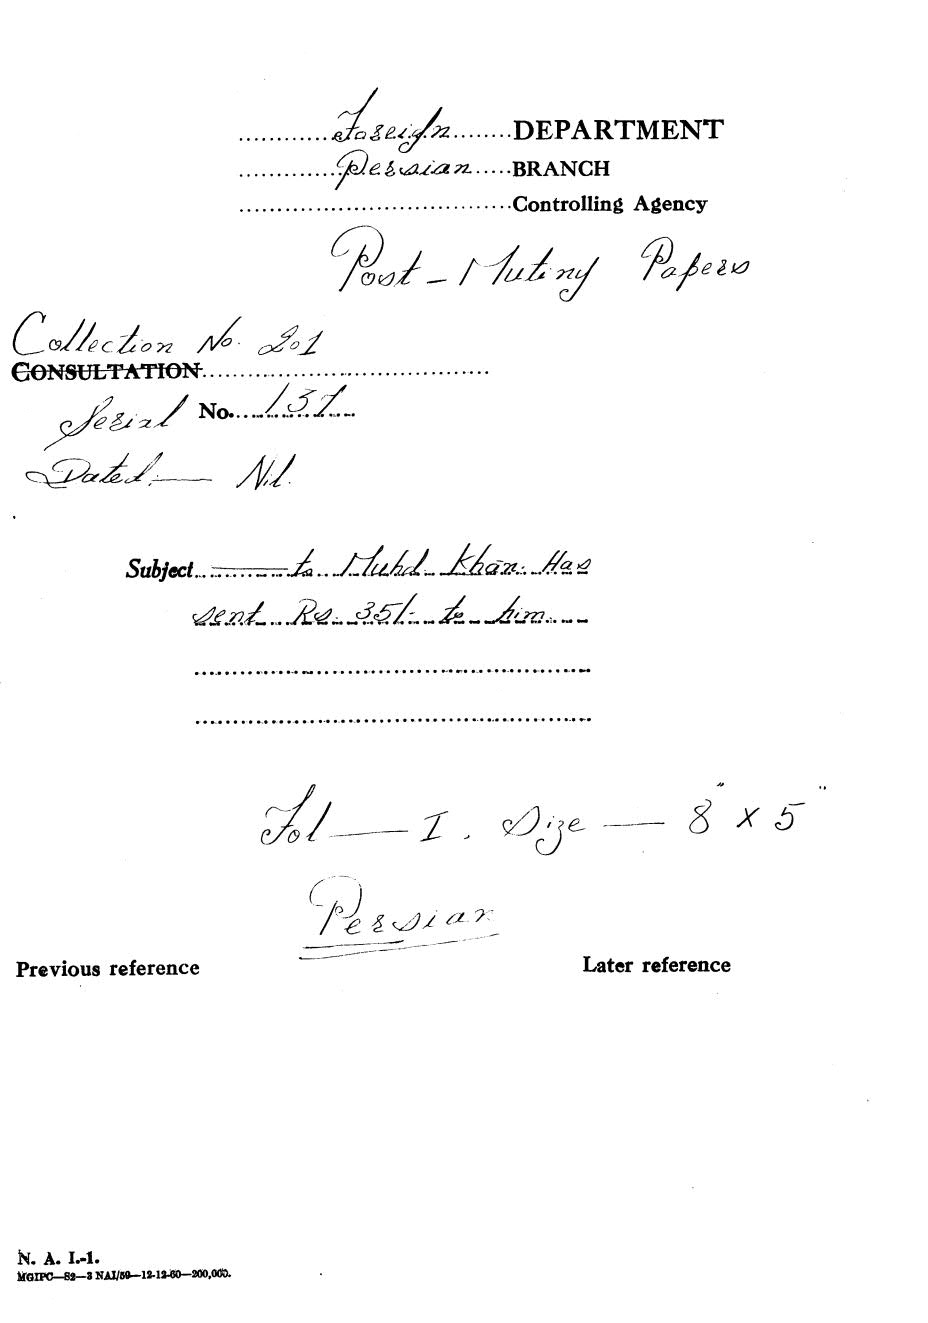 Foreign DEPARTMENT
Persian BRANCH
Controlling Agency
Post-Mutiny Papers
Collection No. 201
CONSULTATION
Serial No. 137
Dated:— Nil.
Subject —— to Muhd. Khān. Has
sent Rs. 35/- to him
Fol — I. Size — 8" x 5"
Persian
Previous reference Later reference
N. A. I.-1.
MGIPC—S2—3 NAI/59—12-12-60—200,000.